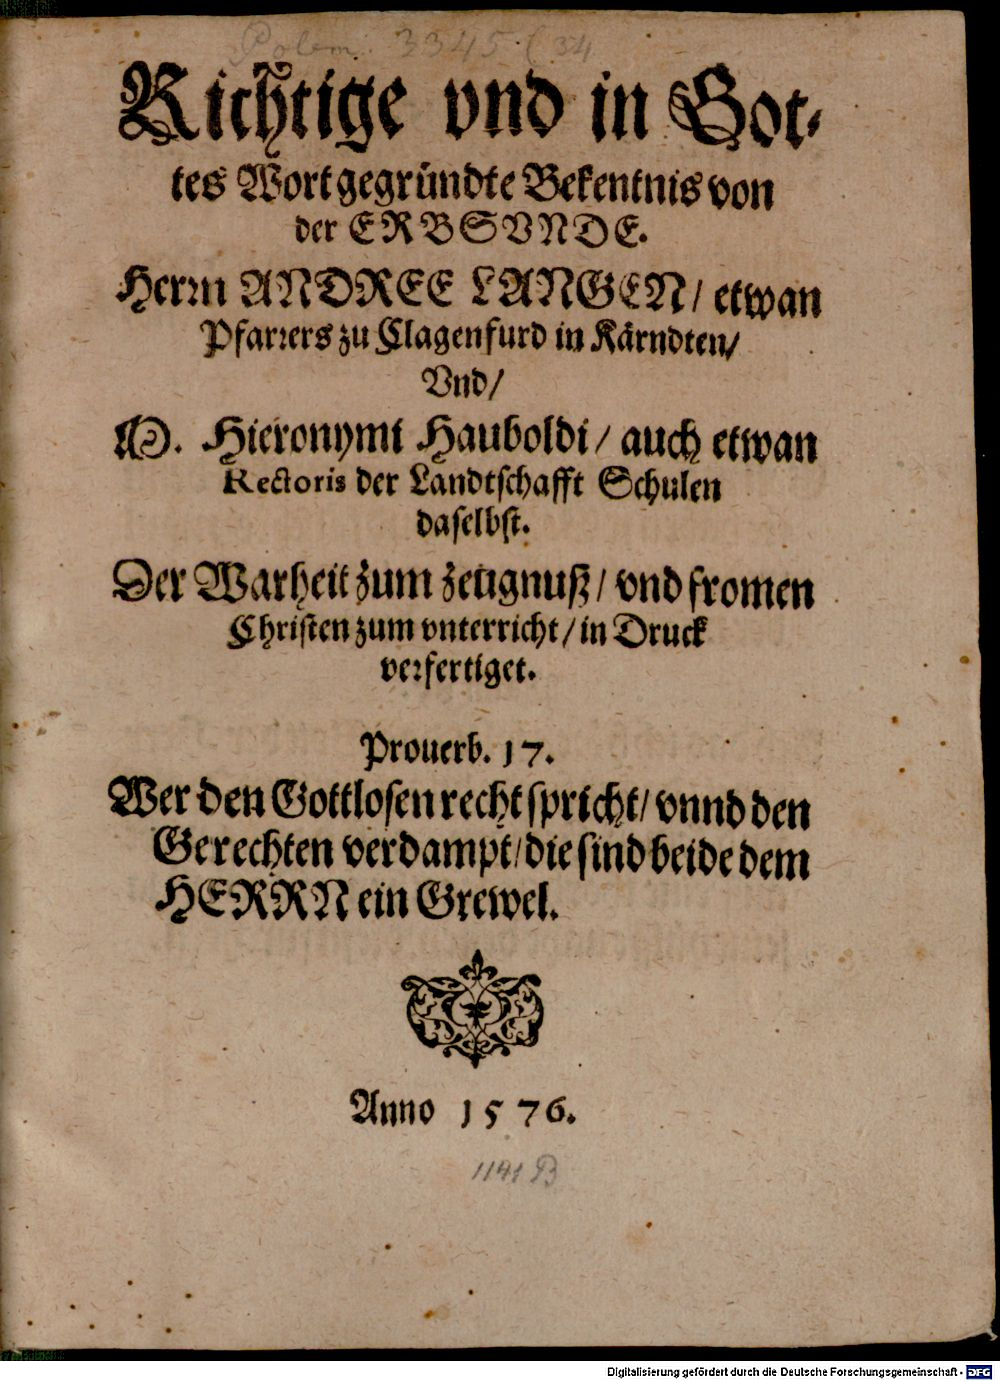 Polem. 3345 (34
Richtige vnd in Got-
tes Wort gegründte Bekentnis von
der ERBSVNDE.
Herrn ANDREE LANGEN/ etwan
Pfarrers zu Clagenfurd in Kärndten/
Vnd/
M. Hieronymi Hauboldi/ auch etwan
Rectoris der Landtschafft Schulen
daselbst.
Der Warheit zum zeugnuß/ vnd fromen
Christen zum vnterricht/ in Druck
verfertiget.
Prouerb. 17.
Wer den Gottlosen recht spricht/ vnnd den
Gerechten verdampt/ die sind beide dem
HERRN ein Grewel.
Anno 1576.
1141 B
Digitalisierung gefördert durch die Deutsche Forschungsgemeinschaft - DFG